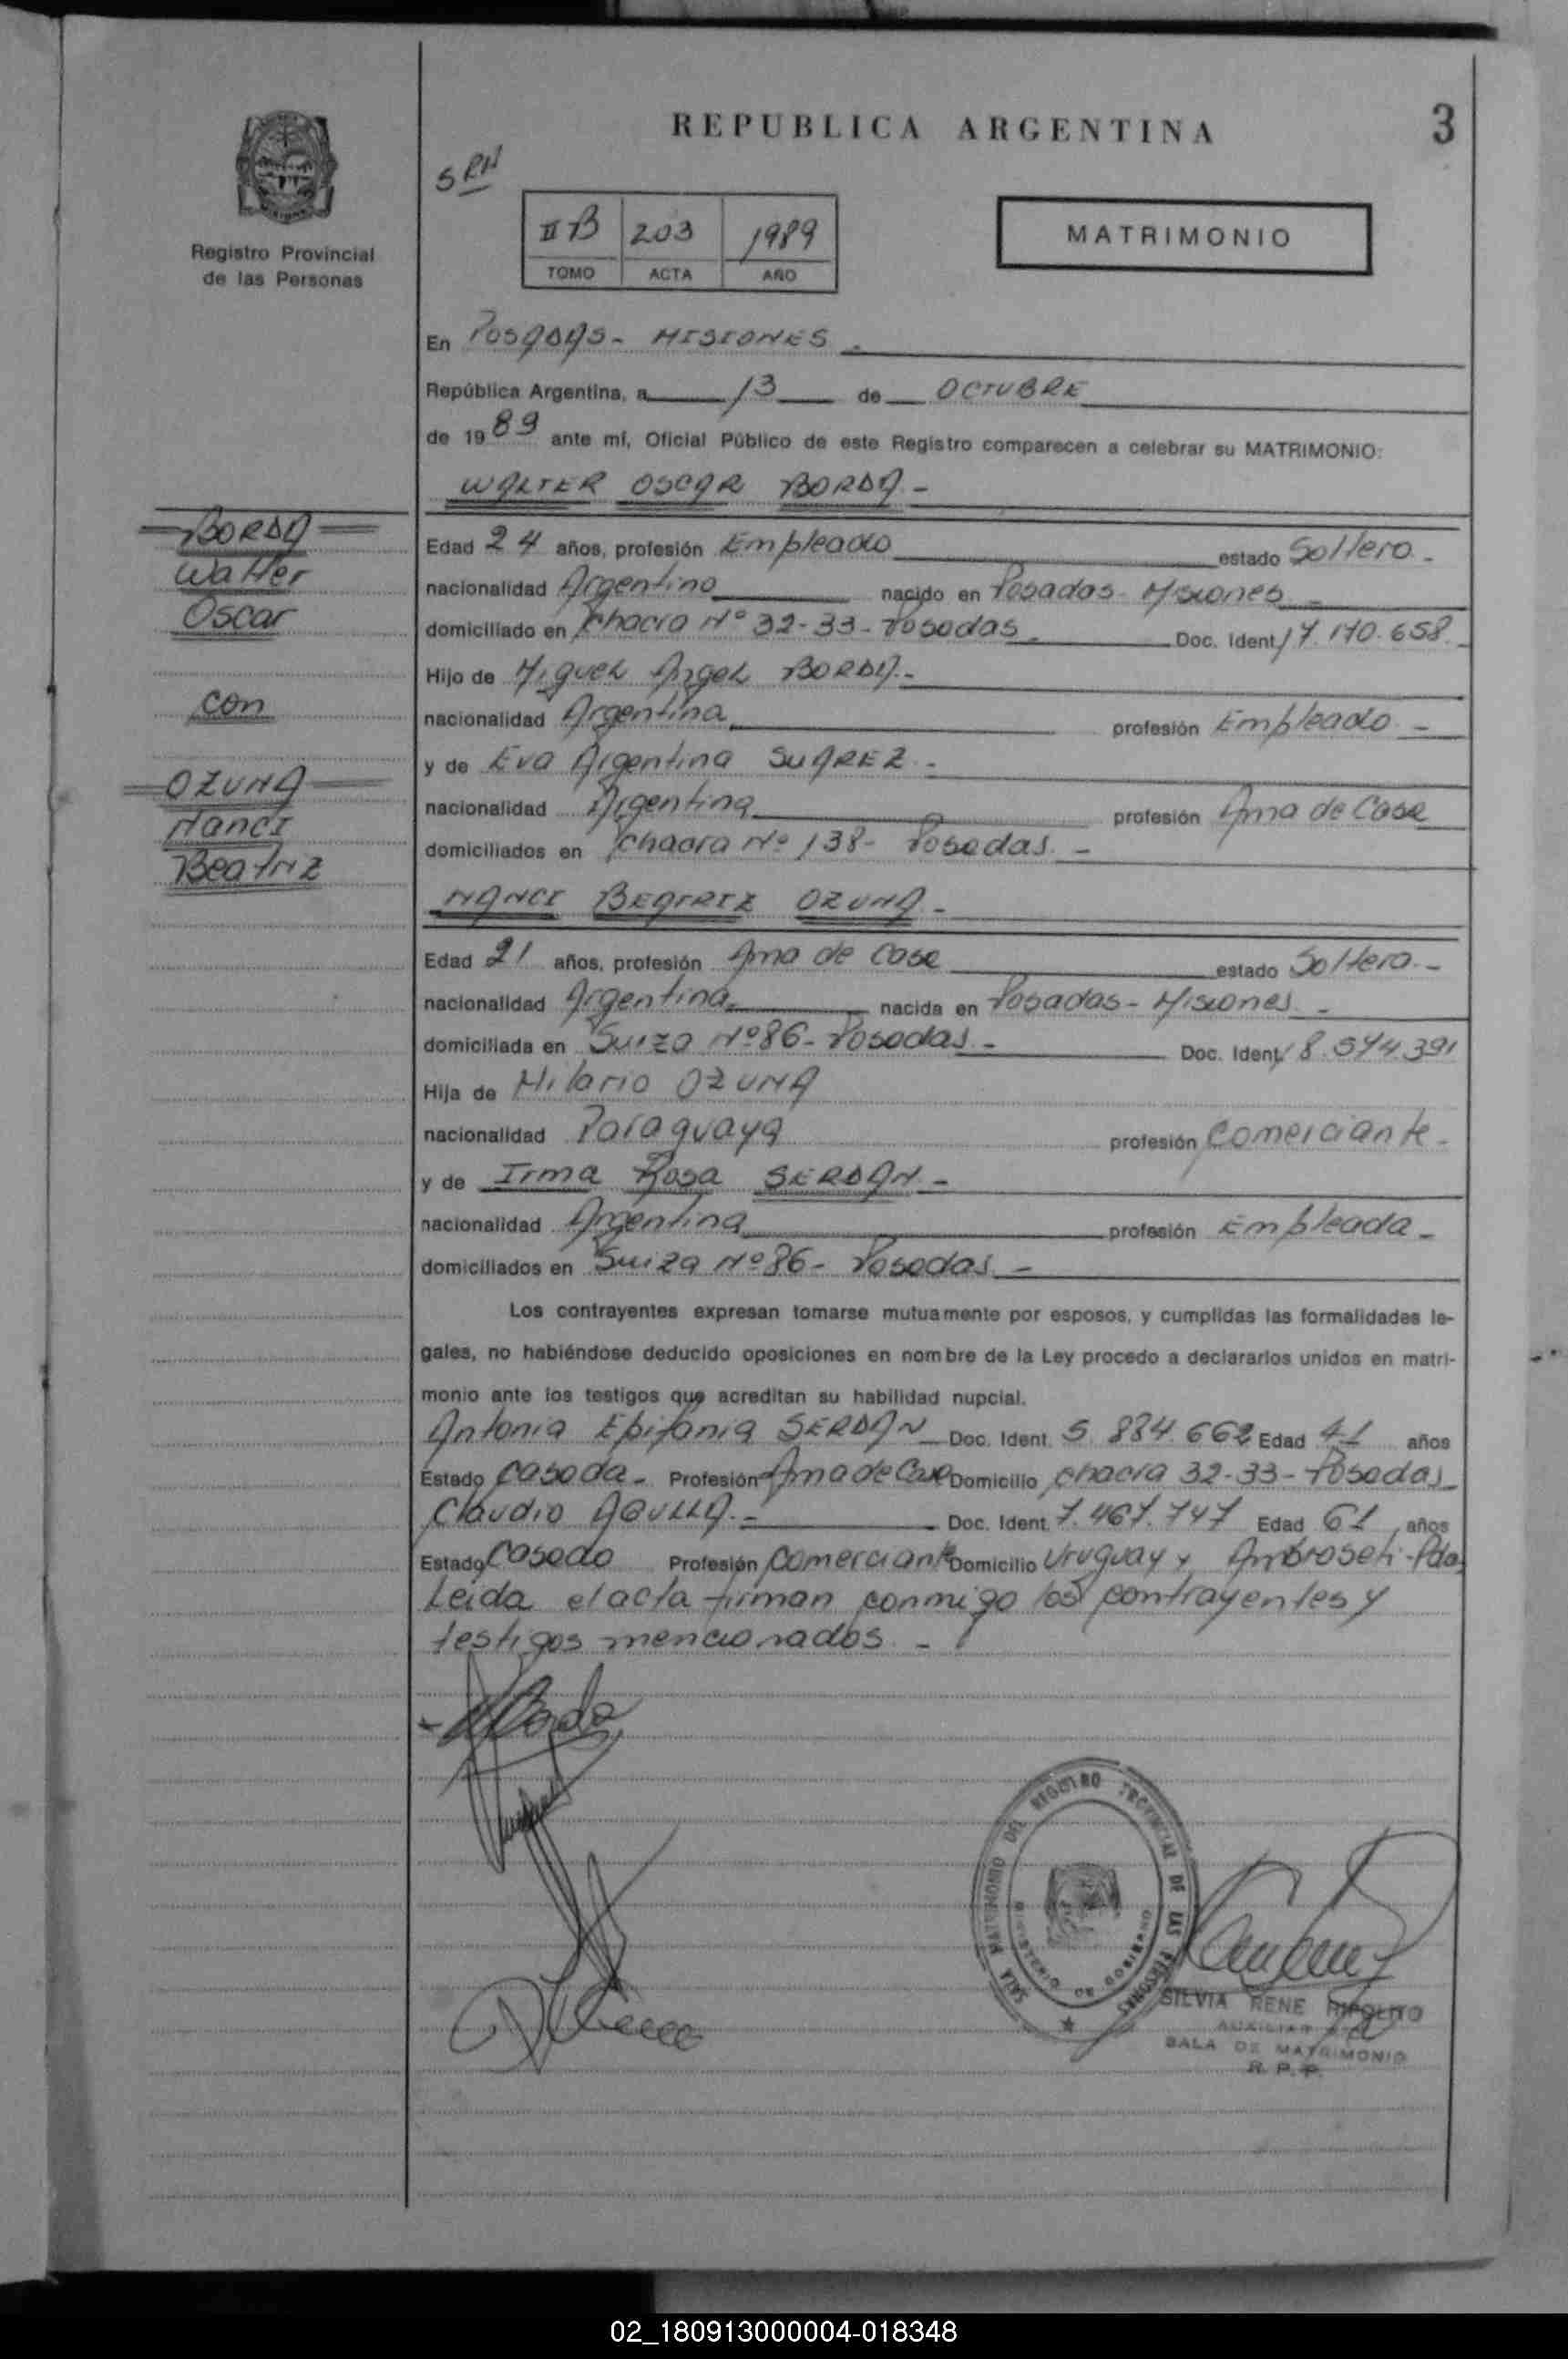 REPUBLICA ARGENTINA
3
Registro Provincial
de las Personas
SRH
II B 203 1989
TOMO ACTA AÑO
MATRIMONIO
En POSADAS - MISIONES -
República Argentina, a 13 de OCTUBRE
de 1989 ante mí, Oficial Público de este Registro comparecen a celebrar su MATRIMONIO:
WALTER OSCAR BORDA -
BORDA
Walter
Oscar
con
OZUNA
NANCI
Beatriz
Edad 24 años, profesión Empleado estado Soltero -
nacionalidad Argentino nacido en Posadas - Misiones -
domiciliado en Chacra Nº 32-33 - Posadas - Doc. Ident 17.170.658 -
Hijo de Miguel Angel BORDA -
nacionalidad Argentina profesión Empleado -
y de Eva Argentina SUAREZ -
nacionalidad Argentina profesión Ama de Casa
domiciliados en Chacra Nº 138 - Posadas -
NANCI BEATRIZ OZUNA -
Edad 21 años, profesión Ama de Casa estado Soltera -
nacionalidad Argentina nacida en Posadas - Misiones -
domiciliada en Suiza Nº 86 - Posadas - Doc. Ident 18.574.391
Hija de Hilario OZUNA
nacionalidad Paraguaya profesión Comerciante -
y de Irma Rosa SERDAN -
nacionalidad Argentina profesión Empleada -
domiciliados en Suiza Nº 86 - Posadas -
Los contrayentes expresan tomarse mutuamente por esposos, y cumplidas las formalidades le-
gales, no habiéndose deducido oposiciones en nombre de la Ley procedo a declararlos unidos en matri-
monio ante los testigos que acreditan su habilidad nupcial.
Antonia Epifania SERDAN Doc. Ident. 5.884.662 Edad 41 años
Estado Casada - Profesión Ama de Casa Domicilio Chacra 32-33 - Posadas
Claudio AQUILA - Doc. Ident. 7.467.747 Edad 61 años
Estado Casado Profesión Comerciante Domicilio Uruguay y Ambroseti - Pdas
Leida el acta firman conmigo los contrayentes y
testigos mencionados -
SALA MATRIMONIO DEL REGISTRO PROVINCIAL DE LAS PERSONAS
MINISTERIO DE GOBIERNO
SILVIA RENE HIPOLITO
AUXILIAR
SALA DE MATRIMONIO
R. P. P.
02_180913000004-018348